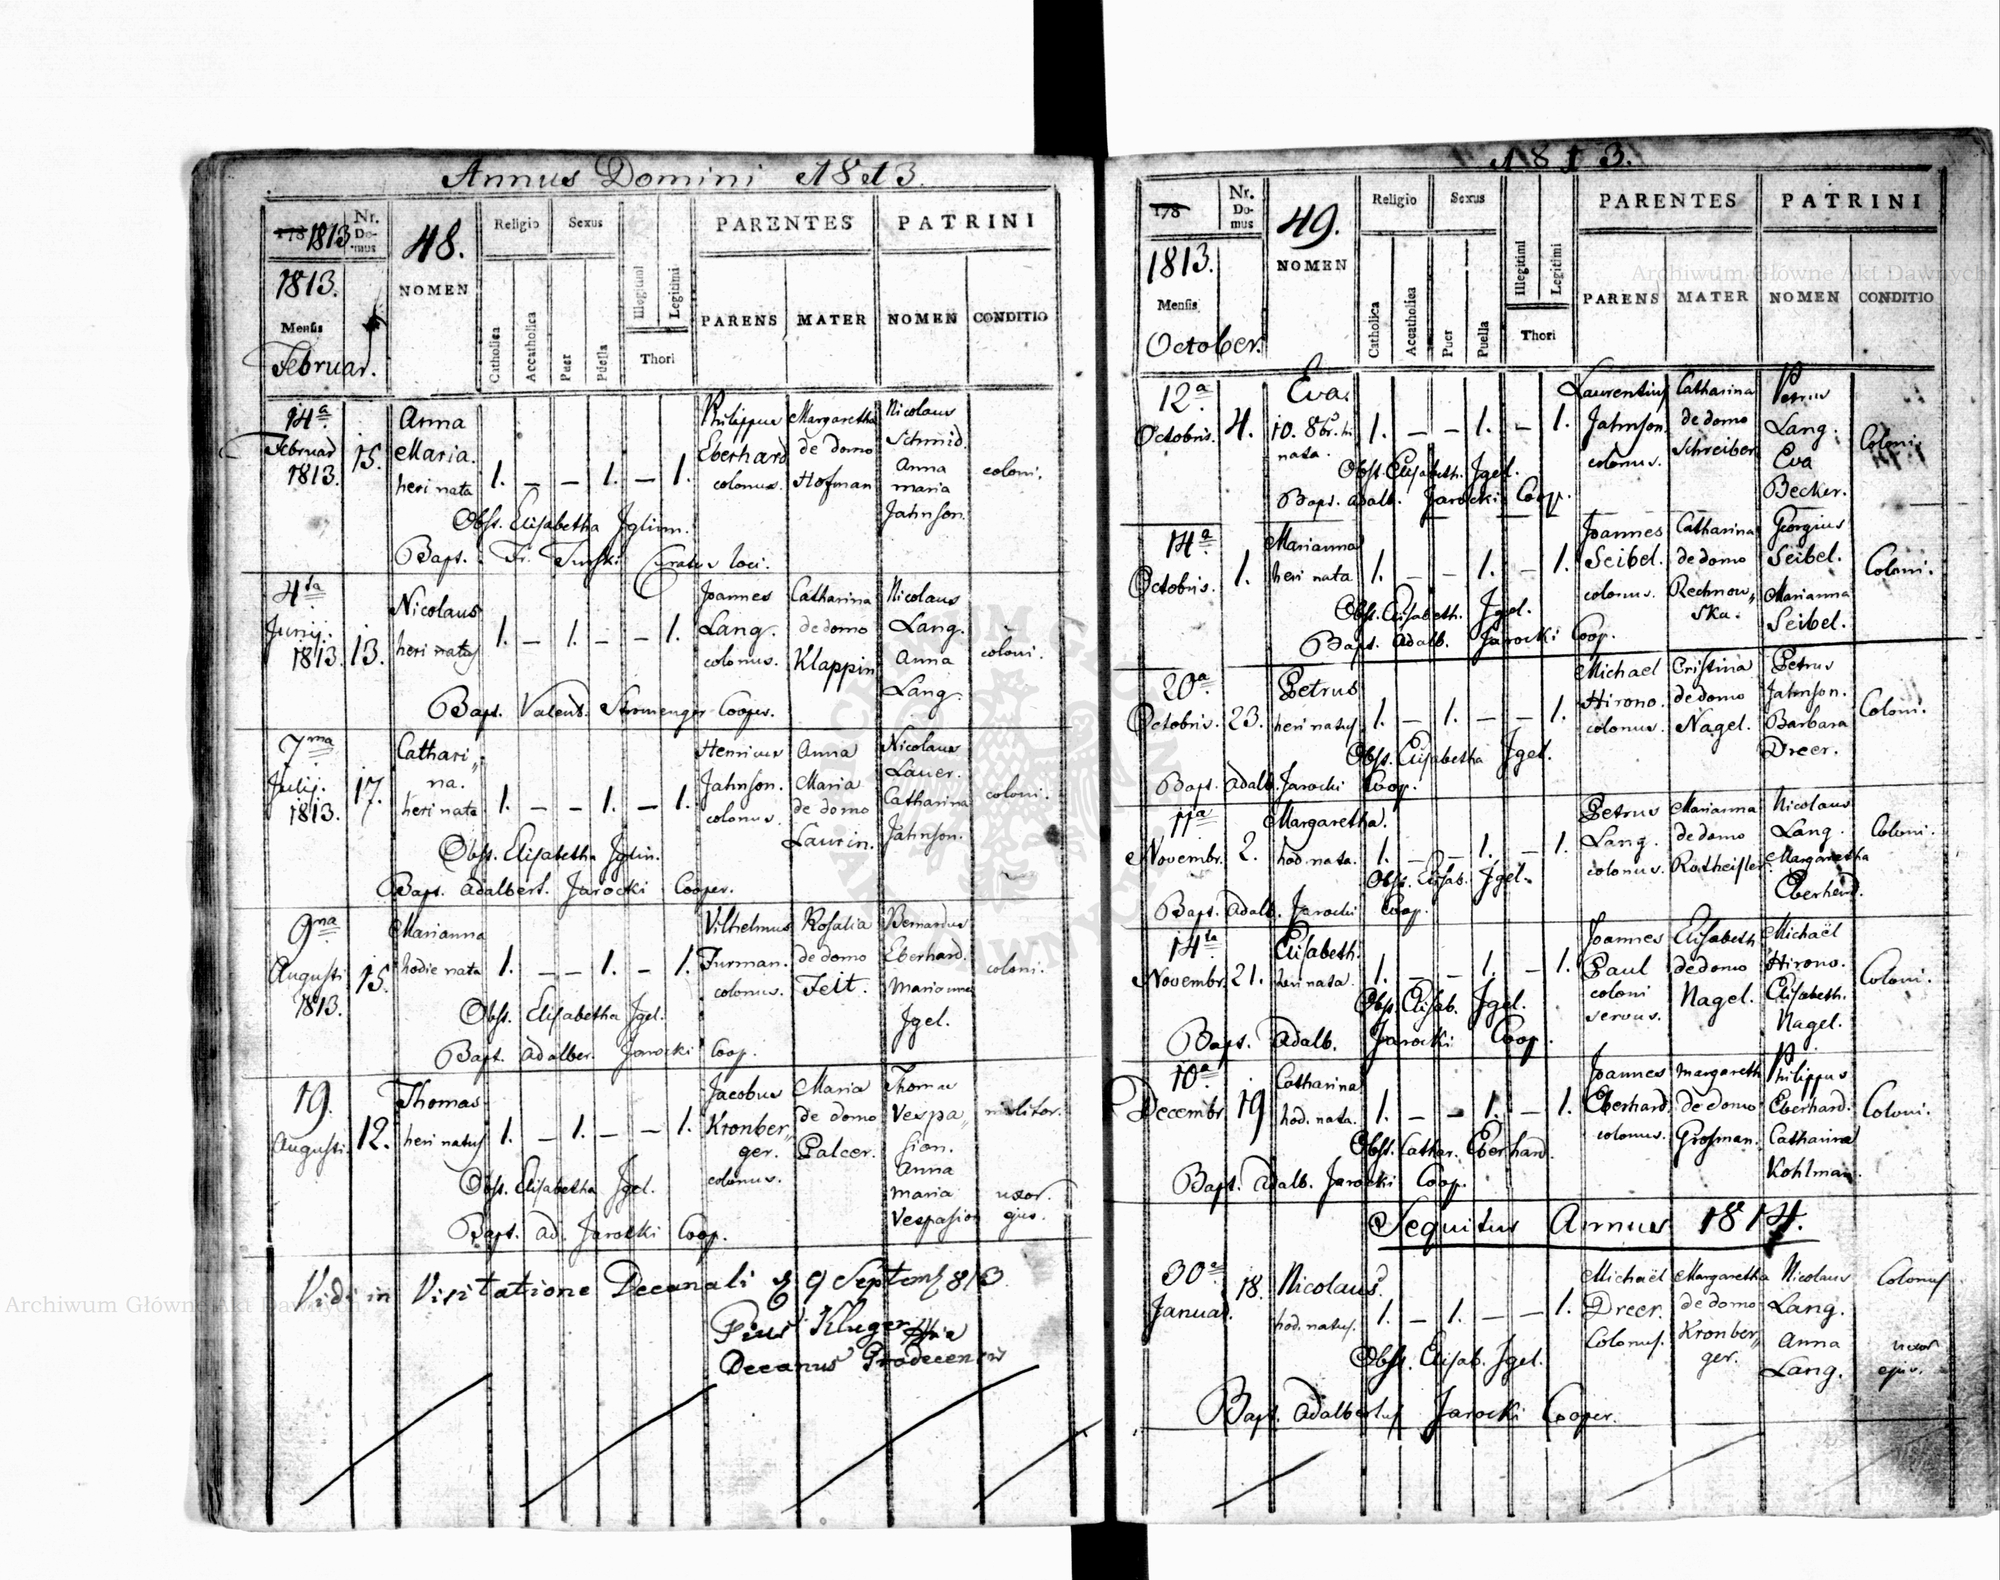 Annus Domini 1813.
178 1813
Nr. Domus
48.
NOMEN
Religio
Sexus
Illegitimi
Legitimi
PARENTES
PATRINI
1813.
Mensis
Februar.
Catholica
Accatholica
Puer
Puella
Thori
PARENS
MATER
NOMEN
CONDITIO
14a Februar 1813.
15.
Anna Maria. heri nata
1. – – 1. – 1.
Philippus Eberhard colonus.
Margaretha de domo Hofman
Nicolaus Schmid. Anna maria Jahnson.
coloni.
Obst. Elisabetha Jglinn.
Baps. Fr. Turski Curatus loci.
4ta Junij. 1813.
13.
Nicolaus heri natus
1. – 1. – – 1.
Joannes Lang. colonus.
Catharina de domo Klappin
Nicolaus Lang. Anna Lang.
coloni.
Baps. Valent. Stromenger Cooper.
7ma Julij. 1813.
17.
Cathari„na. heri nata
1. – – 1. – 1.
Henricus Jahnson. colonus.
Anna Maria de domo Laurin.
Nicolaus Lauer. Catharina Jahnson.
coloni.
Obst. Elisabetha Jglin.
Baps. Adalbert. Jarocki Cooper.
9na Augusti 1813.
15.
Marianna hodie nata
1. – – 1. – 1.
Vilhelmus Furman. colonus.
Rosalia de domo Feit.
Bernardus Eberhard. Marianna Jgel.
coloni.
Obst. Elisabetha Jgel.
Bapt. Adalber. Jarocki Coop.
19. Augusti.
12.
Thomas heri natus
1. – 1. – – 1.
Jacobus Kronber„ger. colonus.
Maria de domo Palcer.
Thomas Vespa„sion. Anna maria Vespasion
molitor.
uxor ejus.
Obst. Elisabetha Jgel.
Bapt. Ad. Jarocki Coop.
Vidi in Visitatione Decanali 9 Septemb 813
Pius Kluger
Decanus Grodecensis
1813.
178
Nr. Domus
49.
NOMEN
Religio
Sexus
Illegitimi
Legitimi
PARENTES
PATRINI
1813.
Mensis
October.
Catholica
Accatholica
Puer
Puella
Thori
PARENS
MATER
NOMEN
CONDITIO
12a Octobris.
4.
Eva. 10. 8br. hi nata.
1. – – 1. – 1.
Laurentius Jahnson. colonus.
Catharina de domo Schreiber
Petrus Lang. Eva Becker.
Coloni.
Obst. Elisabeth. Jgel.
Baps. Adalb. Jarocki Coop.
14a Octobris.
1.
Marianna heri nata
1. – – 1. – 1.
Joannes Seibel. colonus.
Catharina de domo Rechnow„ska.
Georgius Seibel. Marianna Seibel.
Coloni.
Obst. Elisabeth. Jgel.
Bapt. Adalb. Jarocki Coop.
20a Octobris.
23.
Petrus heri natus
1. – 1. – – 1.
Michael Hirono. colonus.
Cristina de domo Nagel.
Petrus Jahnson. Barbara Dreer.
Coloni.
Obst. Elisabetha Jgel.
Bapt. Adalb. Jarocki Coop.
11a Novembr.
2.
Margaretha. hod. nata.
1. – – 1. – 1.
Petrus Lang. colonus.
Marianna de domo Rotheisler.
Nicolaus Lang. Margaretha Eberhard.
Coloni.
Obst. Elisab. Jgel.
Bapt. Adalb. Jarocki Coop.
14ta Novembr.
21.
Elisabeth. heri nata.
1. – – 1. – 1.
Joannes Paul coloni servus.
Elisabeth de domo Nagel.
Michaël Hirono. Elisabeth. Nagel.
Coloni.
Obst. Elisab. Jgel.
Baps. Adalb. Jarocki Coop.
10a Decembr
19
Catharina hod. nata.
1. – – 1. – 1.
Joannes Eberhard. colonus.
Margareth de domo Grosman.
Philippus Eberhard. Catharina Kohlman.
Coloni.
Obst. Cathar. Eberhard.
Bapt. Adalb. Jarocki Coop.
Sequitur Annus 1814.
30a Januar.
18.
Nicolaus. hod. natus.
1. – 1. – – 1.
Michaël Dreer. Colonus.
Margaretha de domo Kronber„ger.
Nicolaus Lang. Anna Lang.
Colonus
uxor ejus.
Obst. Elisab. Jgel.
Bapt. Adalbertus Jarocki Cooper.
Archiwum Główne Akt Dawnych
Archiwum Główne Akt Dawnych
ARCHIWUM GŁÓWNE AKT DAWNYCH